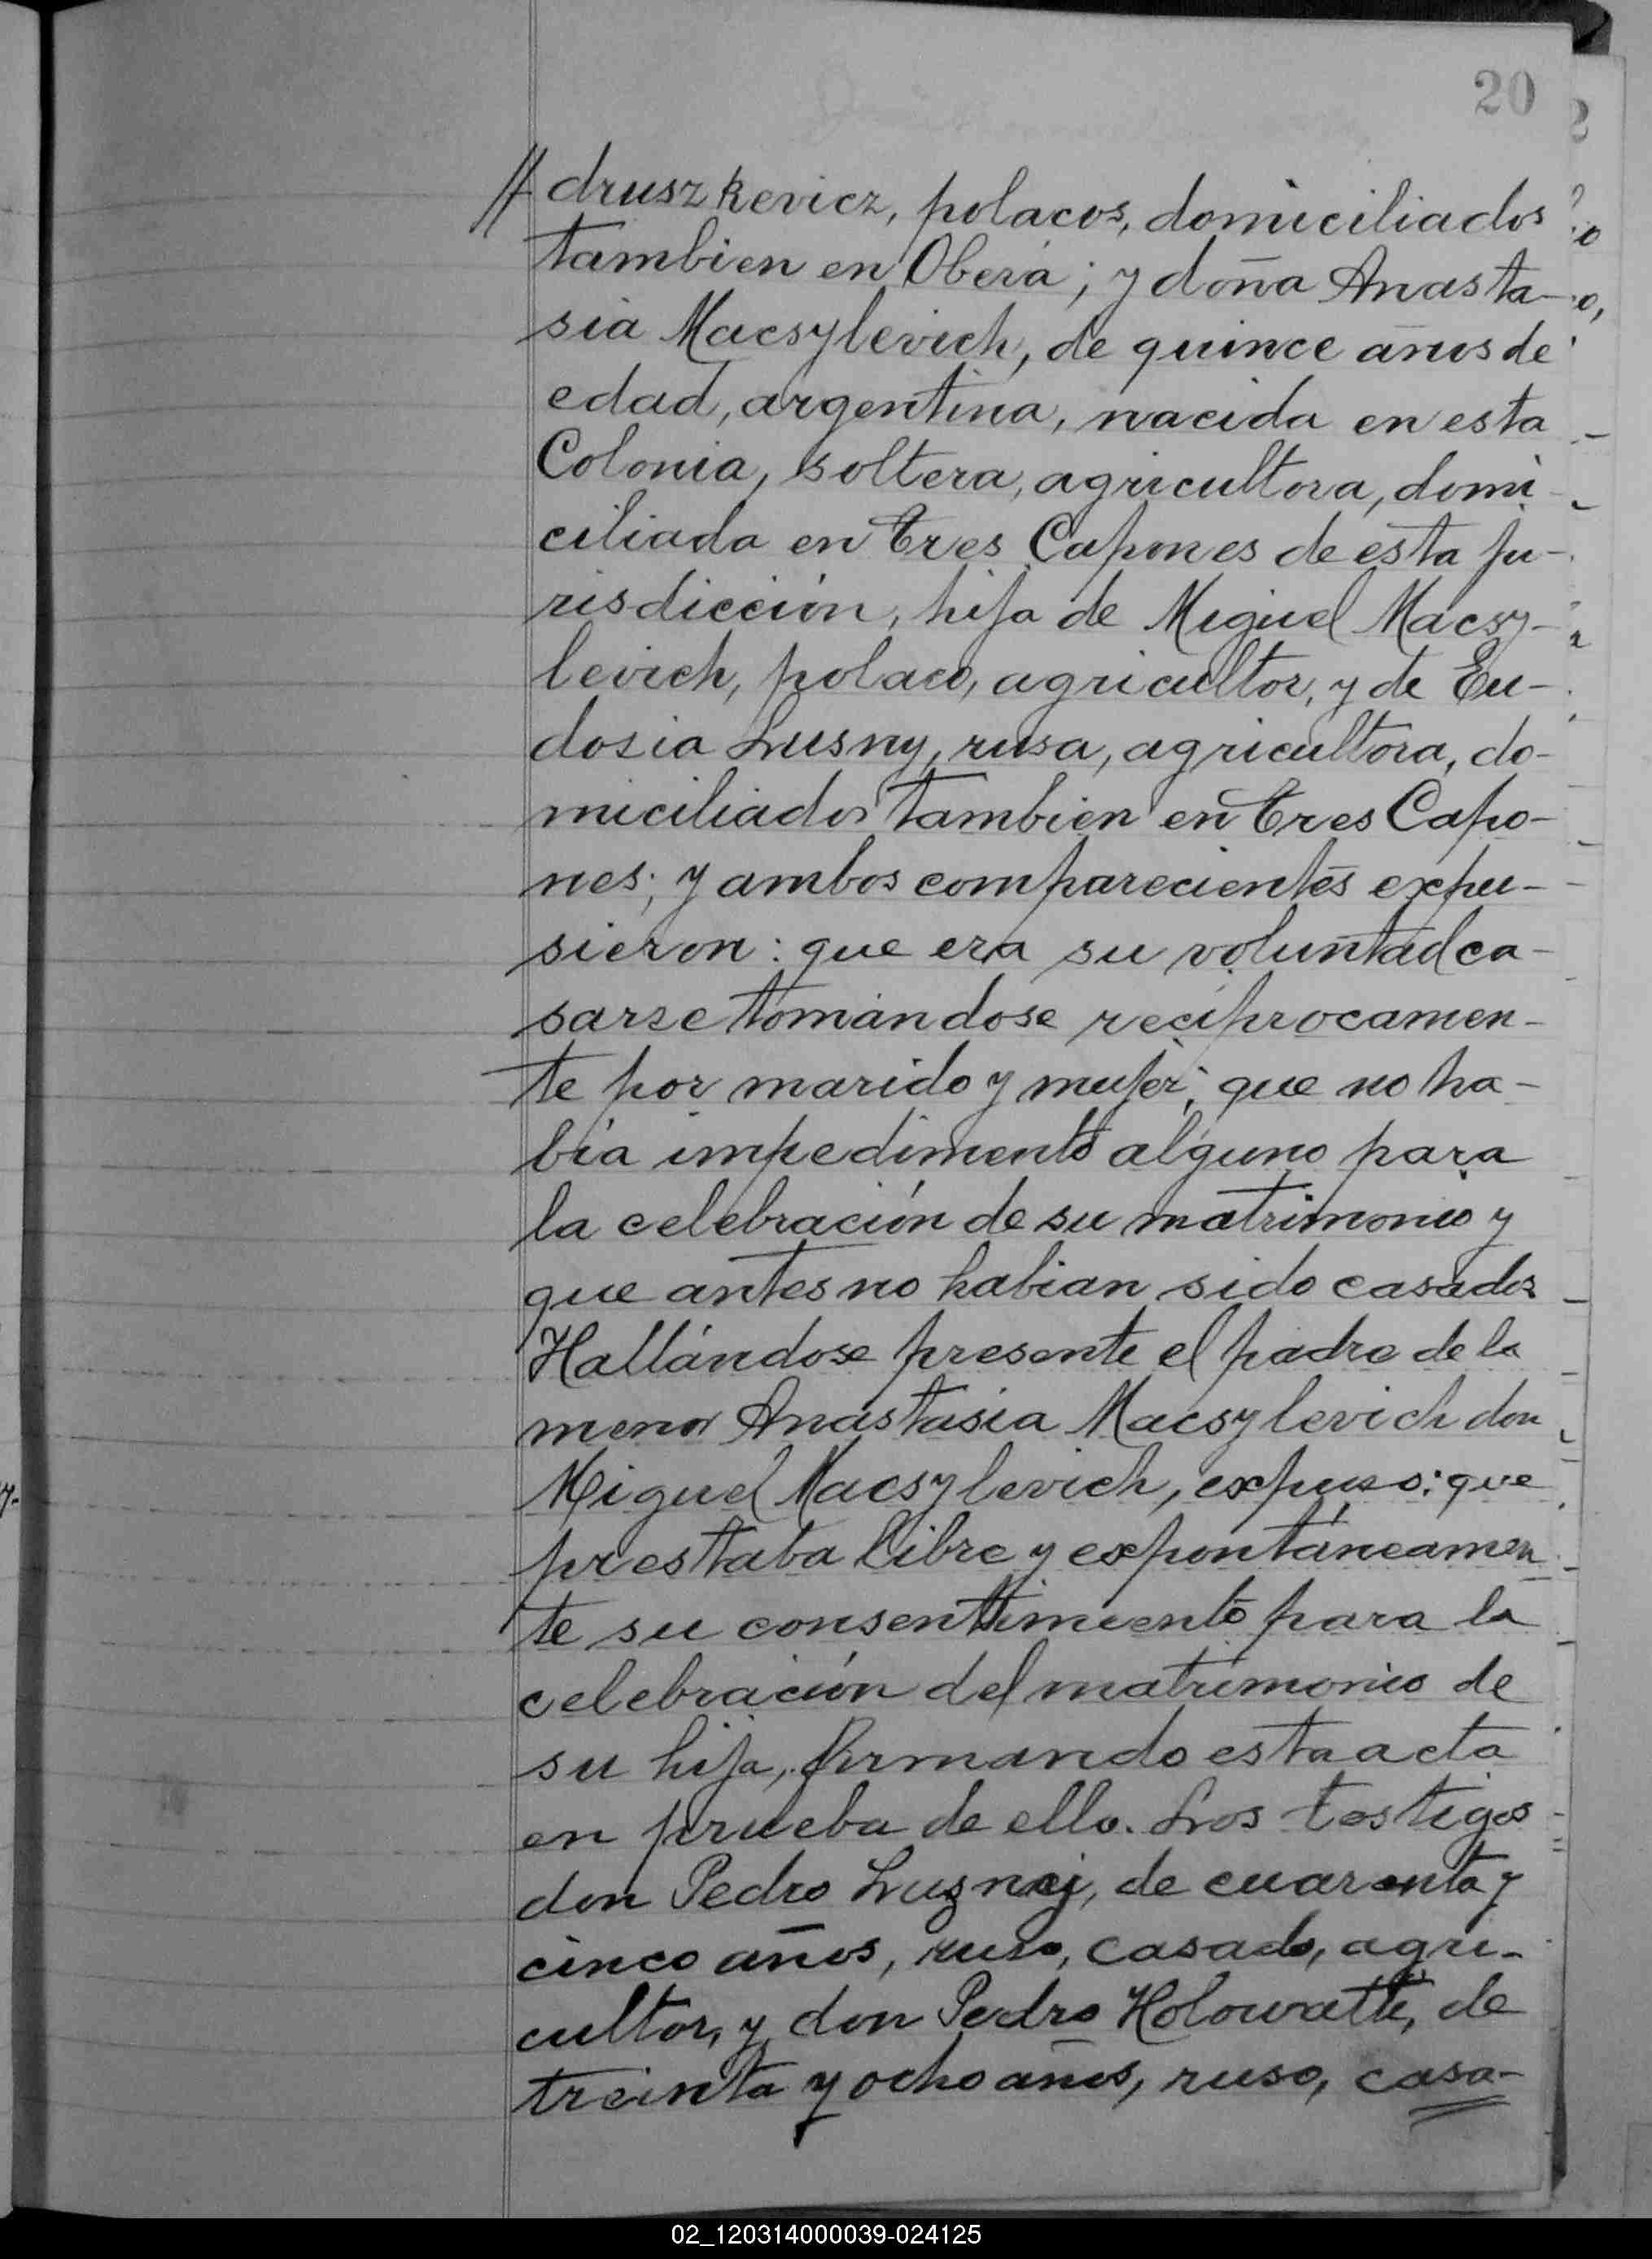 20
// druszkevicz, polacos, domiciliados
tambien en Oberá; y doña Anasta-
sia Macsylevich, de quince años de
edad, argentina, nacida en esta
Colonia, soltera, agricultora, domi-
ciliada en Tres Capones de esta ju-
risdicción, hija de Miguel Macsy-
levich, polaco, agricultor, y de Eu-
dosia Lusny, rusa, agricultora, do-
miciliados tambien en Tres Capo-
nes; y ambos comparecientes expu-
sieron: que era su voluntad ca-
sarse tomándose reciprocamen-
te por marido y mujer; que no ha-
bía impedimento alguno para
la celebración de su matrimonio y
que antes no habian sido casados
Hallándose presente el padre de la
menor Anastasia Macsylevich don
Miguel Macsylevich, expuso: que
prestaba libre y expontáneamen
te su consentimiento para la
celebración del matrimonio de
su hija, firmando esta acta
en prueba de ello. Los testigos
don Pedro Luznij, de cuarenta y
cinco años, ruso, casado, agri-
cultor, y don Pedro Holowatti, de
treinta y ocho años, ruso, casa-
02_120314000039-024125